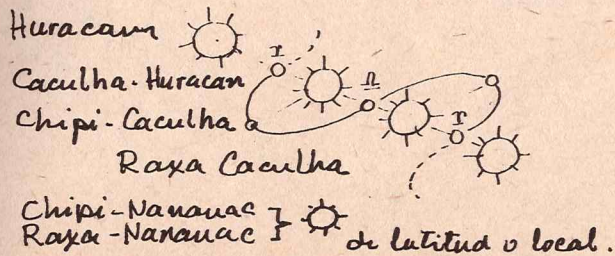 Huracan
Caculha-Huracan
Chipi-Caculha
Raxa Caculha
Chipi-Nanauac
Raxa-Nanauac } de latitud o local.